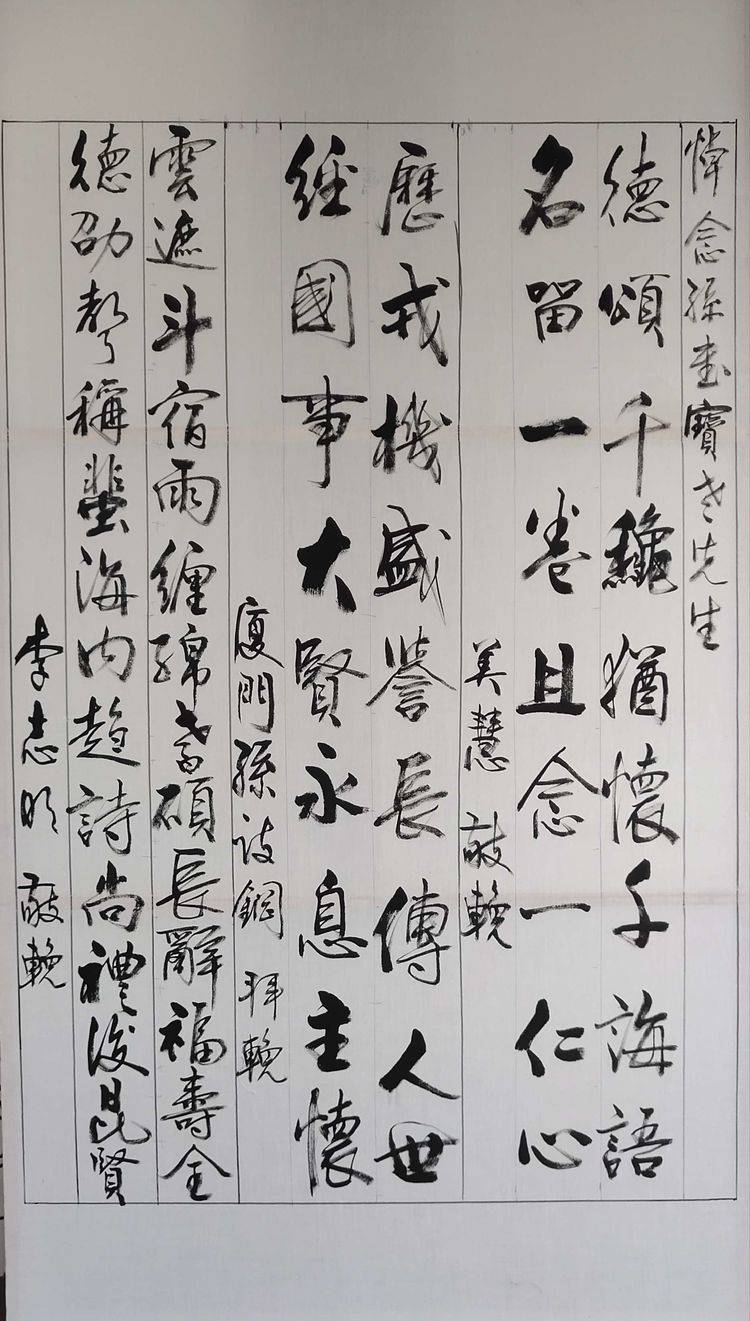 悼念孫寶老先生
德頌千龝猶懷千誨語
名留一卷且念一仁心
美慧 敬輓
歷戎機盛譽長傳人世
經國事大賢永息主懷
廈門孫鋼 拜輓
雲遮斗宿雨纏綿耆碩長辭福壽全
德劭聲稱蜚海内趨詩尚禮後昆賢
李志明 敬輓